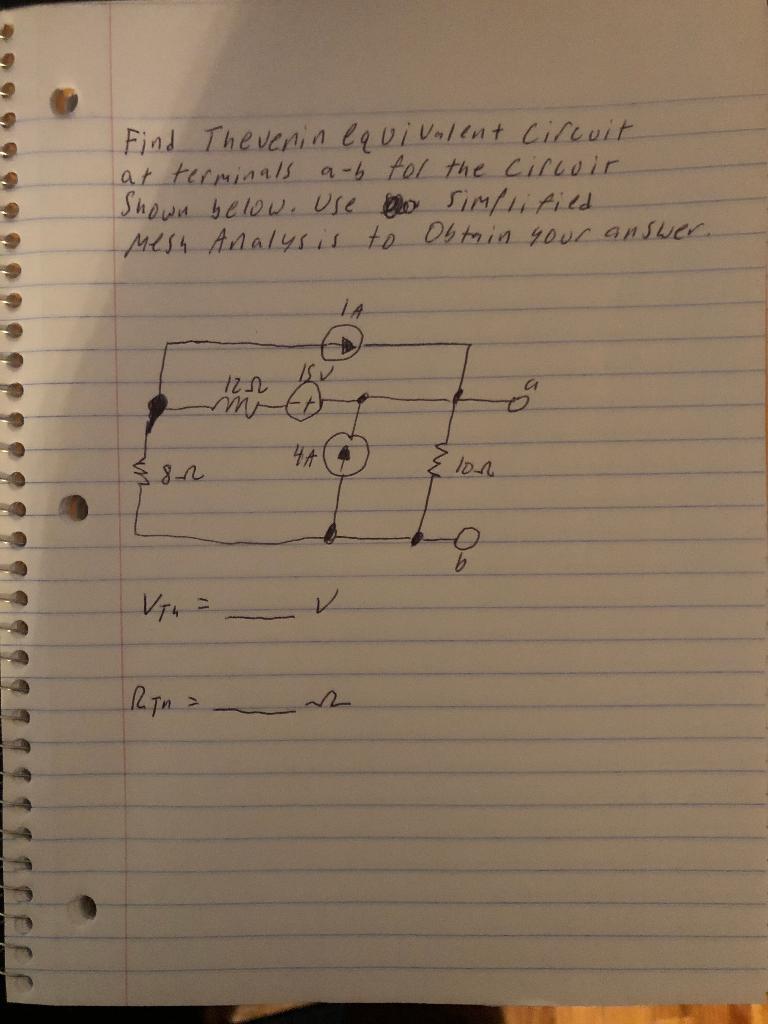 Find Thevenin Equivalent Circuit
at terminals a-b for the Circuit
Shown below. Use Simplified
Mesh Analysis to Obtain your answer.
1A
12Ω
15V
- +
a
4A
8Ω
10Ω
b
VTh = ____ V
RTh = ____ Ω